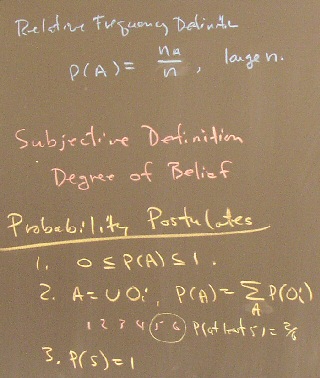 Relative Frequency Definition
P(A) = na/n, large n.
Subjective Definition
Degree of Belief
Probability Postulates
1. 0 ≤ P(A) ≤ 1.
2. A = ∪ Oi, P(A) = Σ_A P(Oi)
1 2 3 4 5 6 P(at least 5) = 2/6
3. P(S) = 1